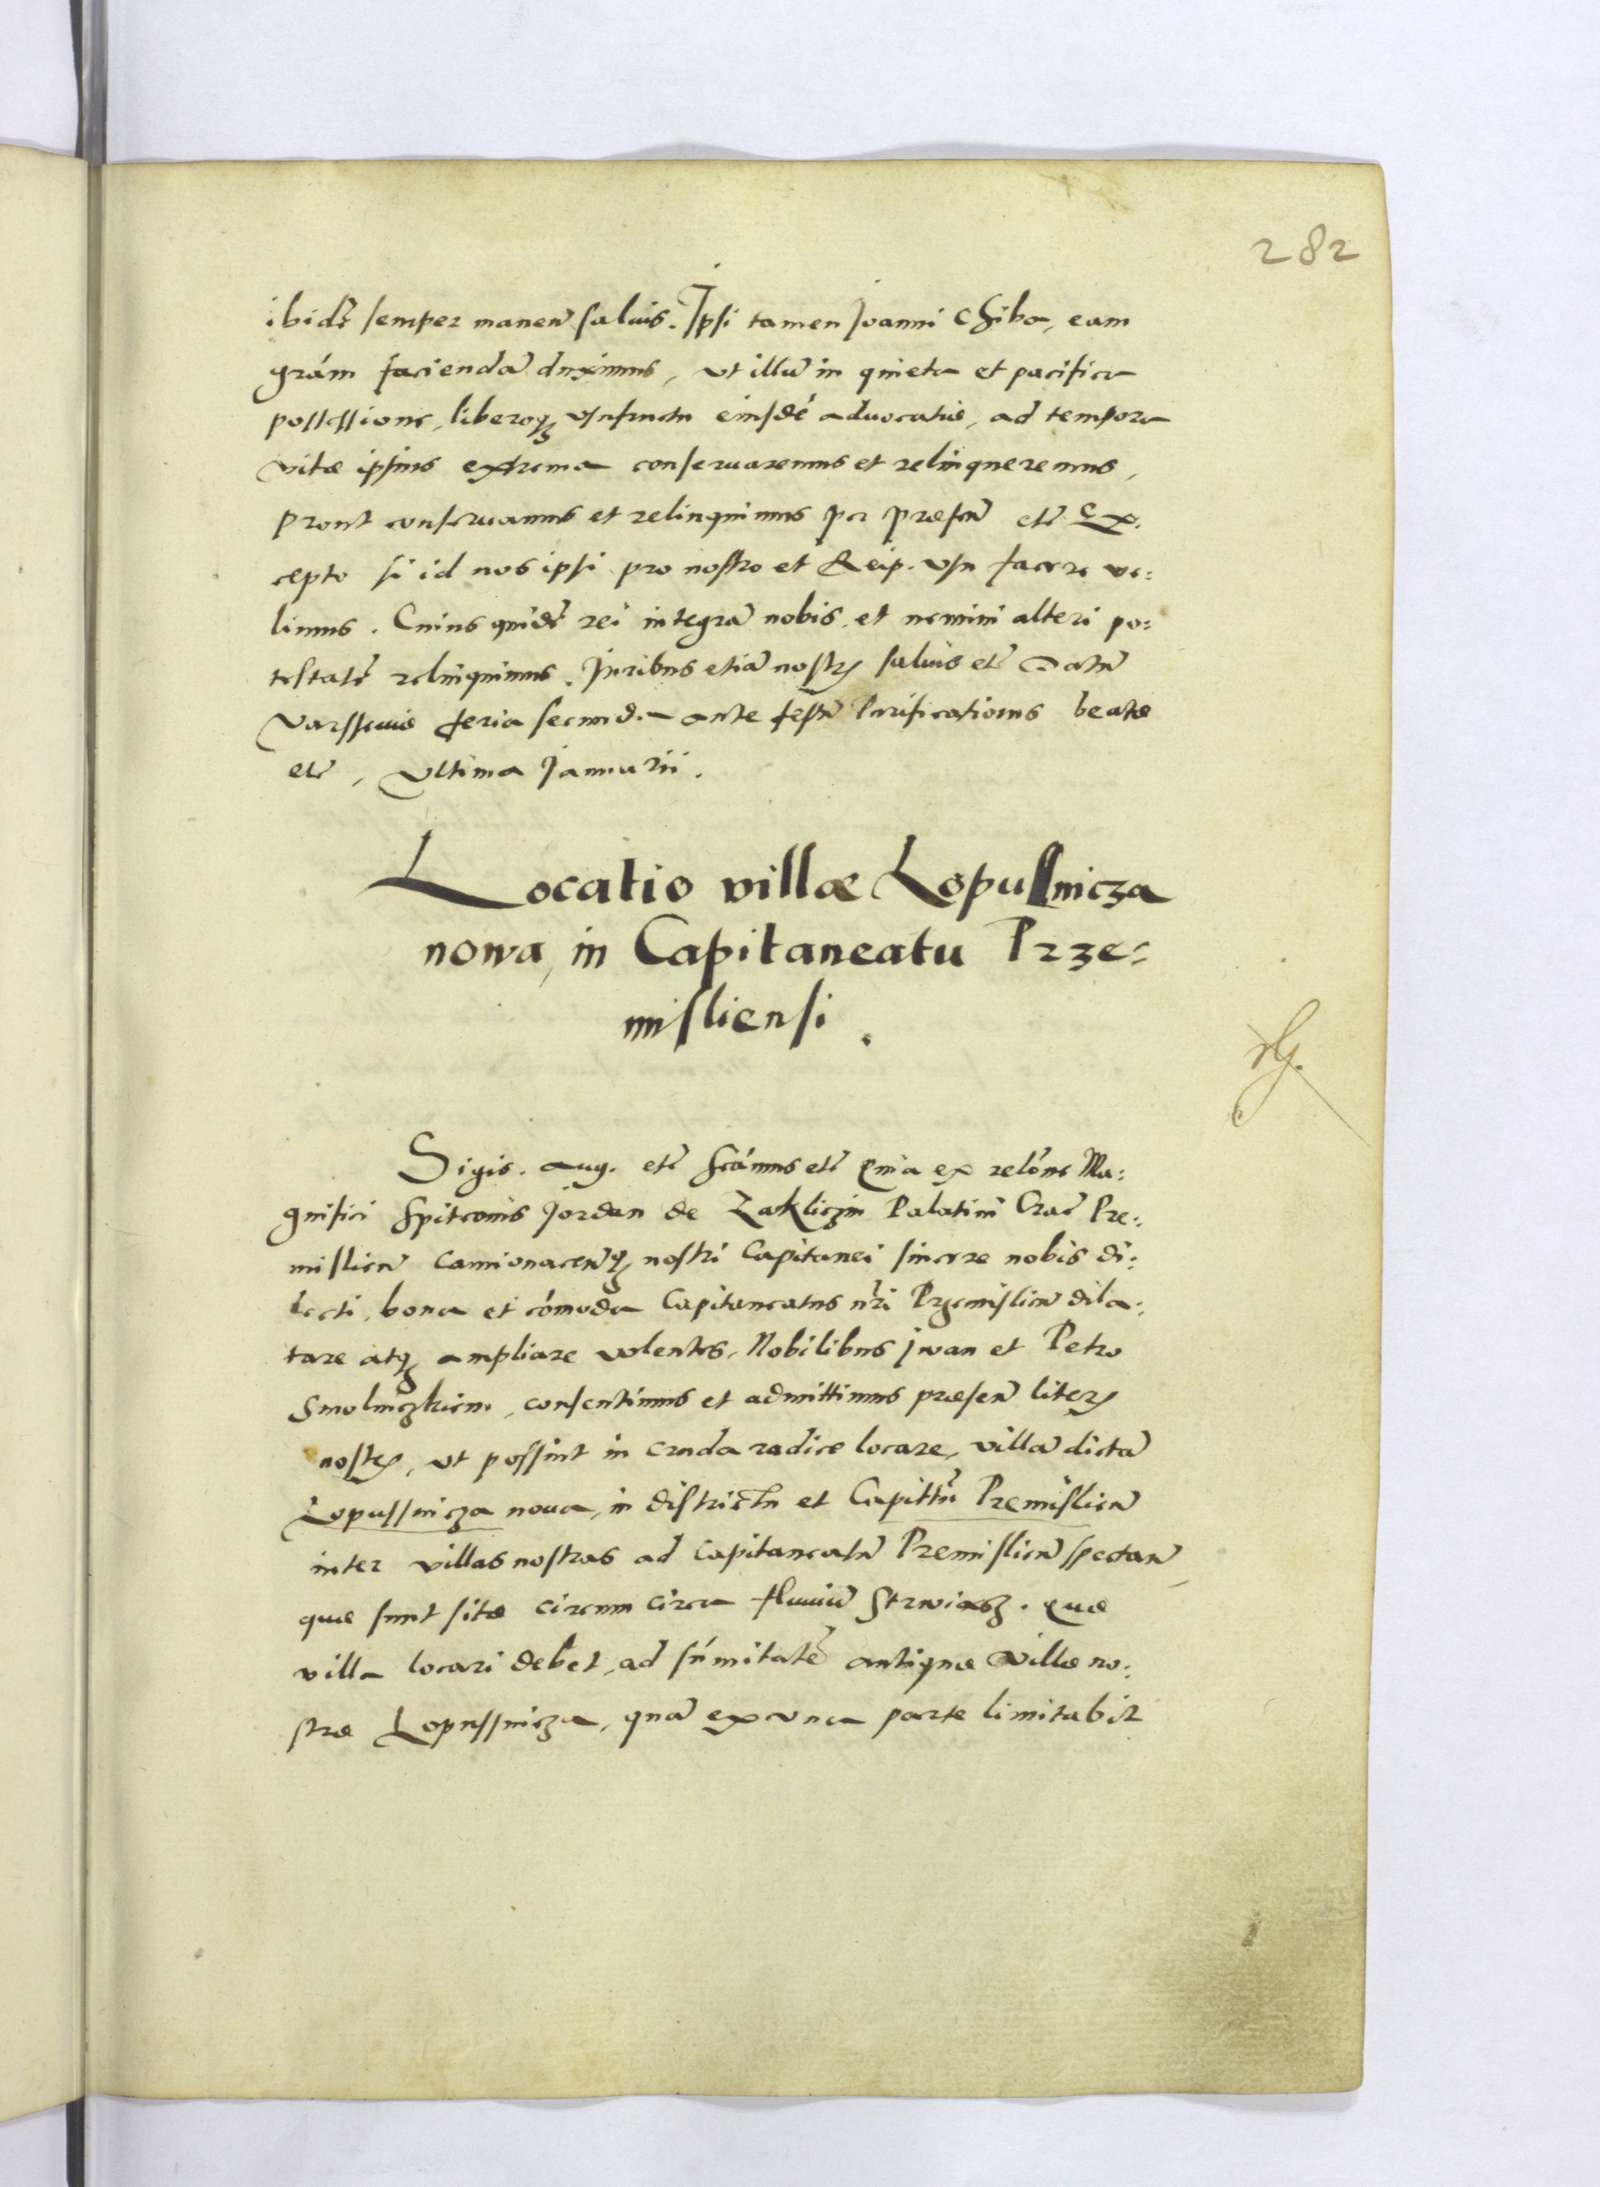 282
ibidē semper manen̄ saluis. Ipsi tamen Joanni Chiba, eam
grám faciendā duximus, vt illū in quieta et pacifica
possessione, liberoqȝ vsufructu eiusdē aduocatiæ, ad tempora
vitæ ipsius extrema conseruaremus et relinqueremus,
Prout conseruamus et relinquimus per præsen̄ etc̄ Ex:
cepto si id nos ipsi pro nostro et Reip. vsu facere ve:
limus. Cuius quidē rei integrā nobis, et nemini alteri po:
testatē relinquimus. Juribus etiā nostrꝭ saluis etc̄ Datū
Varssouiæ feria secunda ante festū Purificationis beatæ
etc̄, vltima Januarii.
Locatio villæ Lopusnicza
nowa, in Capitaneatu Prze:
misliensi.
Sigis. Aug. etc̄ scámus etc̄ Quia ex relóne Ma:
gnifici Spitconis Jordan de Zakliczin Palatini Crac̄ Pre:
mislien̄ Camionacen̄qȝ nostri Capitanei sincere nobis di:
lecti, bona et cómoda Capitaneatus nr̄i Przemislien̄ dila:
tare atqȝ ampliare volentes, Nobilibus Iwan et Petro
Smolniczkiem, consentimus et admittimus præsen̄ literꝭ
nostrꝭ, vt possint in cruda radice locare, villā dictā
Lopussnicza noua, in districtu et Capittū Premislien̄
inter villas nostras ad Capitaneatū Premislien̄ spectan̄
quæ sunt sitæ circum circa fluuiū Strwiacz. Quæ
villa locari debet, ad súmitatē antiquæ Villæ no:
stræ Lopussnicza, quā ex vna parte limitabit